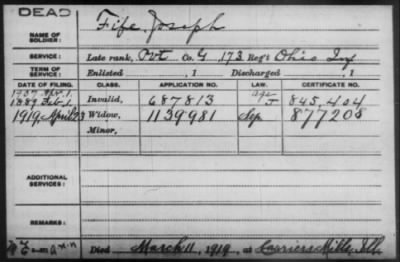 DEAD
NAME OF SOLDIER: Fife, Joseph
SERVICE: Late rank, Pvt Co. G 173 Reg't Ohio Inf
TERM OF SERVICE: Enlisted , 1 Discharged , 1
DATE OF FILING. CLASS. APPLICATION NO. LAW. CERTIFICATE NO.
1889 Feb. 1 Invalid, 687813 age J 845,404
1919, April 23 Widow, 1139981 Sep 877208
Minor,
ADDITIONAL SERVICES:
REMARKS:
Died March 11, 1919, at Carriers Mills, Ill.